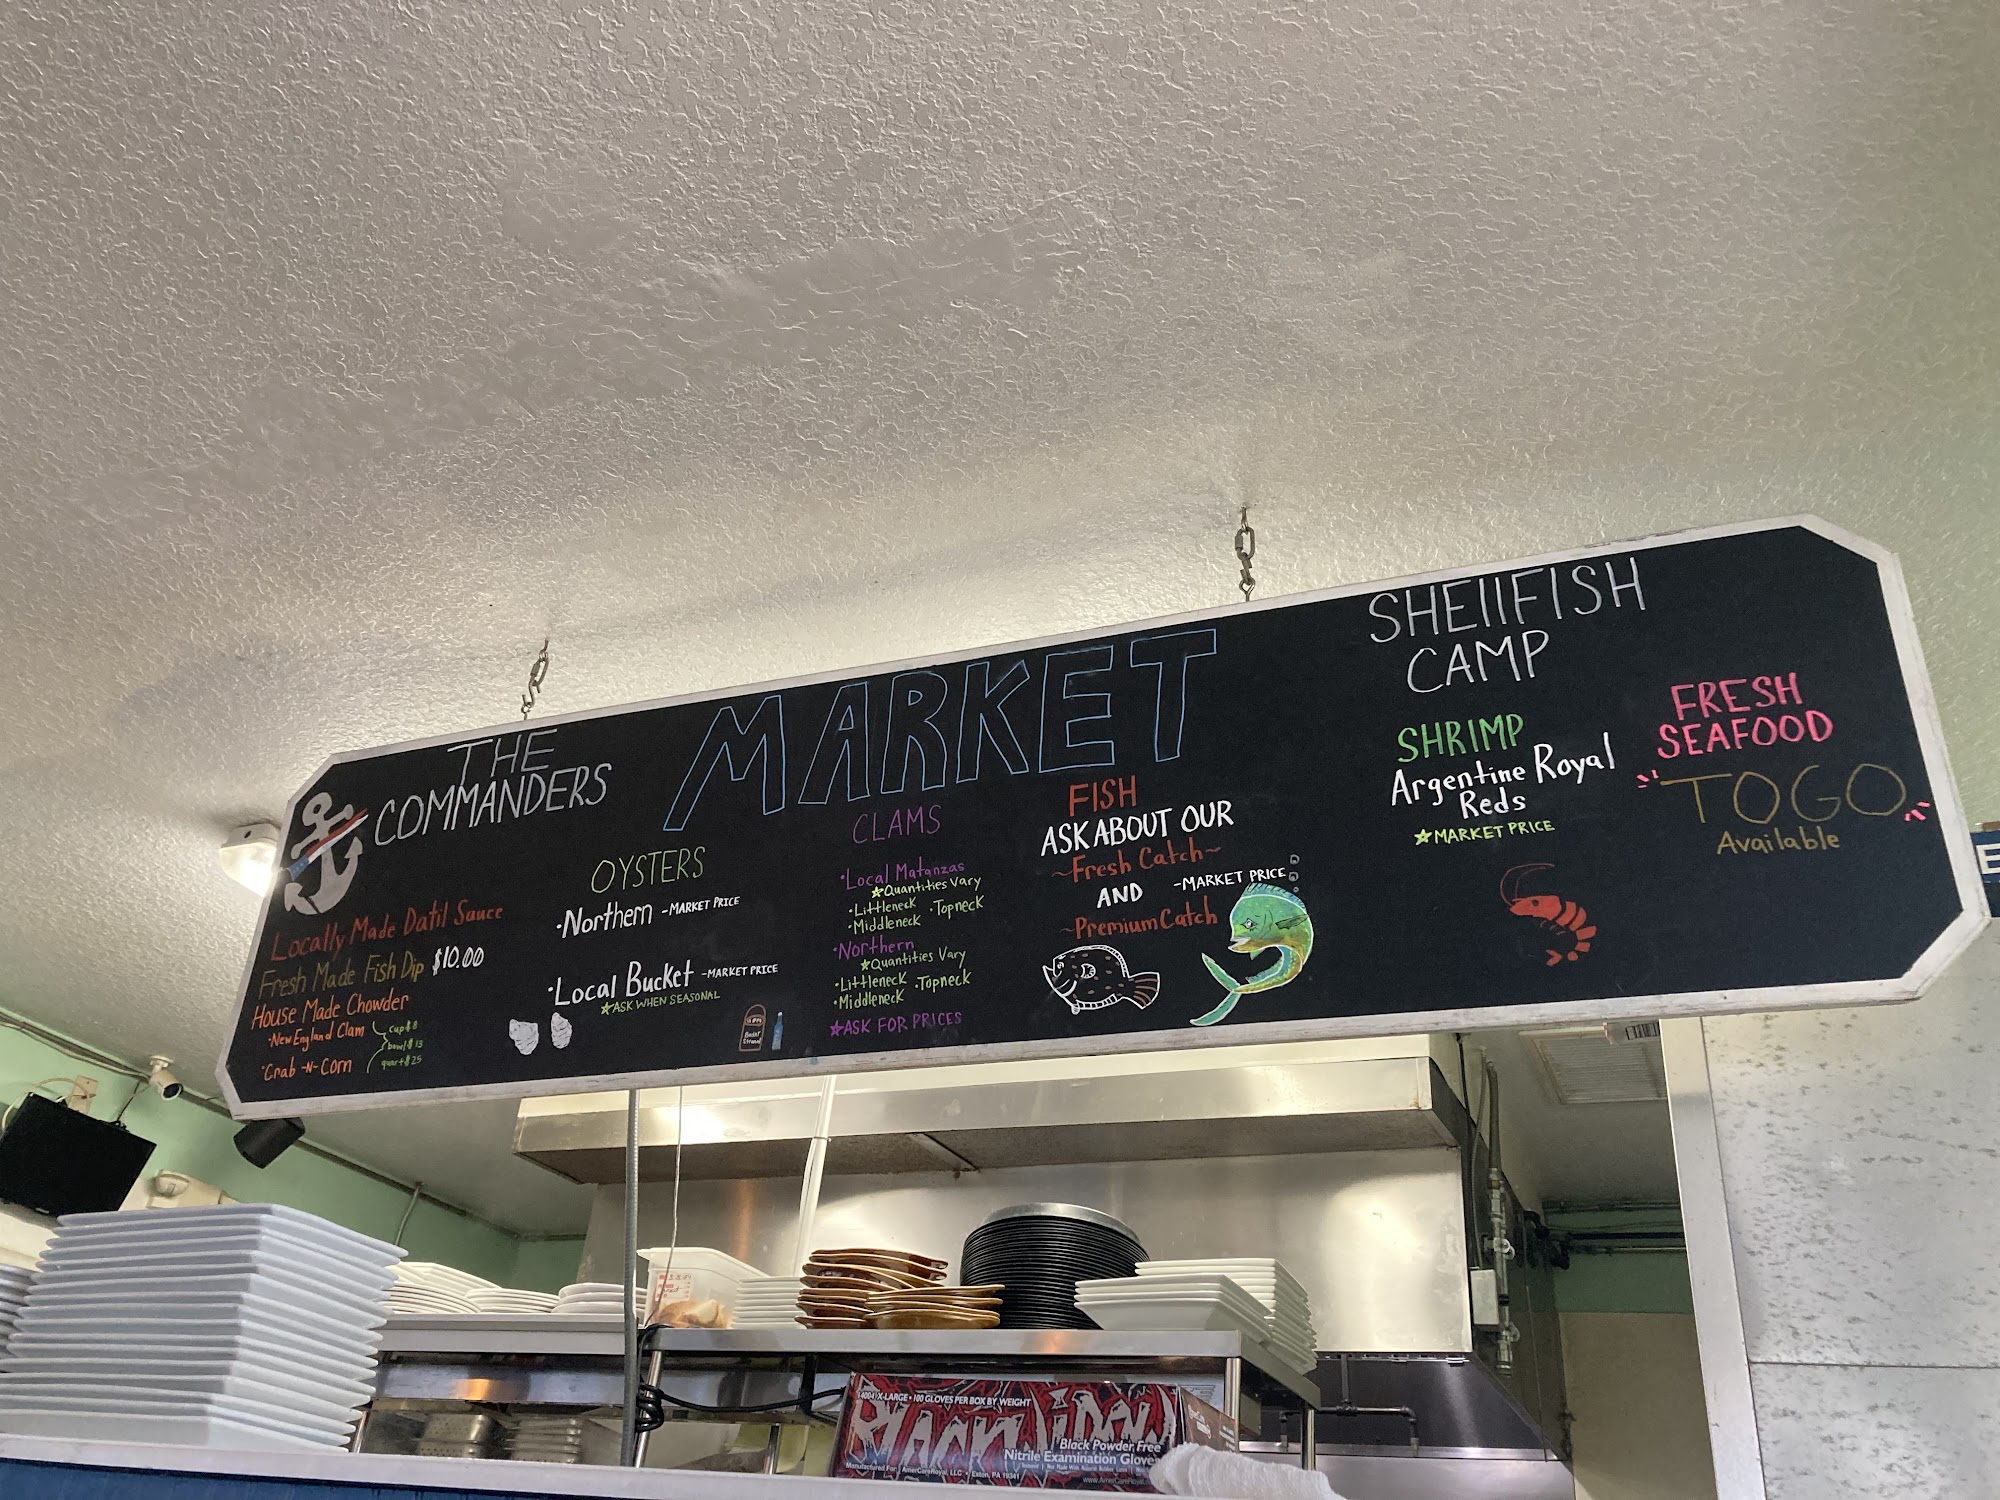 THE
COMMANDERS
MARKET
SHEllFISH
CAMP
Locally Made Datil Sauce
Fresh Made Fish Dip $10.00
House Made Chowder
·New England Clam
·Crab -N- Corn
cup $8
bowl $13
quart $25
OYSTERS
·Northern -MARKET PRICE
·Local Bucket -MARKET PRICE
☆ASK WHEN SEASONAL
CLAMS
·Local Matanzas
☆Quantities Vary
·Littleneck ·Topneck
·Middleneck
·Northern
☆Quantities Vary
·Littleneck ·Topneck
·Middleneck
☆ASK FOR PRICES
FISH
ASK ABOUT OUR
~Fresh Catch~
AND -MARKET PRICE
~Premium Catch
SHRIMP
Argentine Royal
Reds
☆MARKET PRICE
FRESH
SEAFOOD
TOGO
Available
X-LARGE • 100 GLOVES PER BOX BY WEIGHT
Black Powder Free
Nitrile Examination Glove
Manufactured For: AmerCareRoyal, LLC • Exton, PA 19341